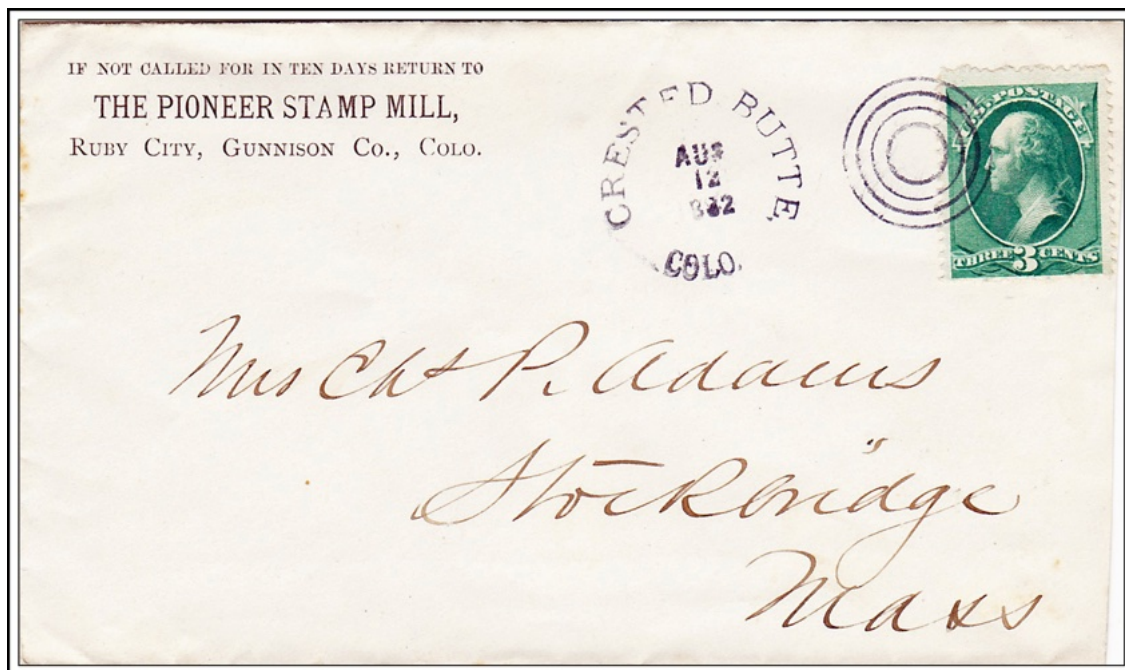 IF NOT CALLED FOR IN TEN DAYS RETURN TO
THE PIONEER STAMP MILL,
RUBY CITY, GUNNISON CO., COLO.
CRESTED BUTTE,
AUG
12
1882
COLO.
U.S. POSTAGE
THREE 3 CENTS
Mrs Chs P. Adams
Stockbridge
Mass